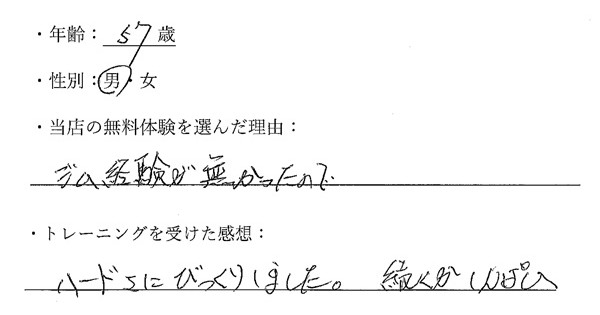 ・年齢：57歳
・性別：男・女
・当店の無料体験を選んだ理由：
ジム経験が無かったので
・トレーニングを受けた感想：
ハードさにびっくりしました。 続くかしんぱい